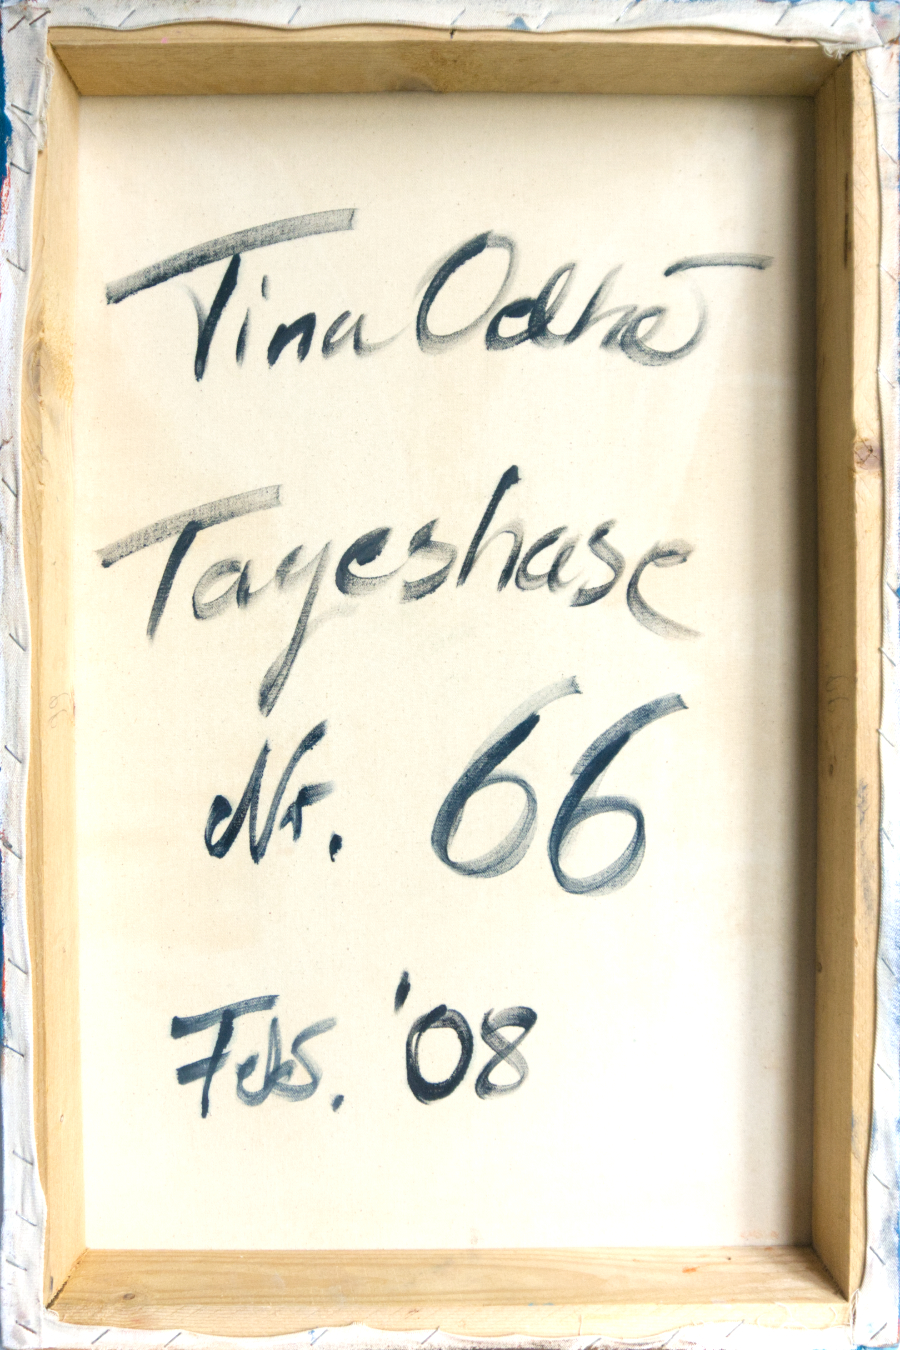 Tina Odhē
Tageshase
Nr. 66
Feb. '08